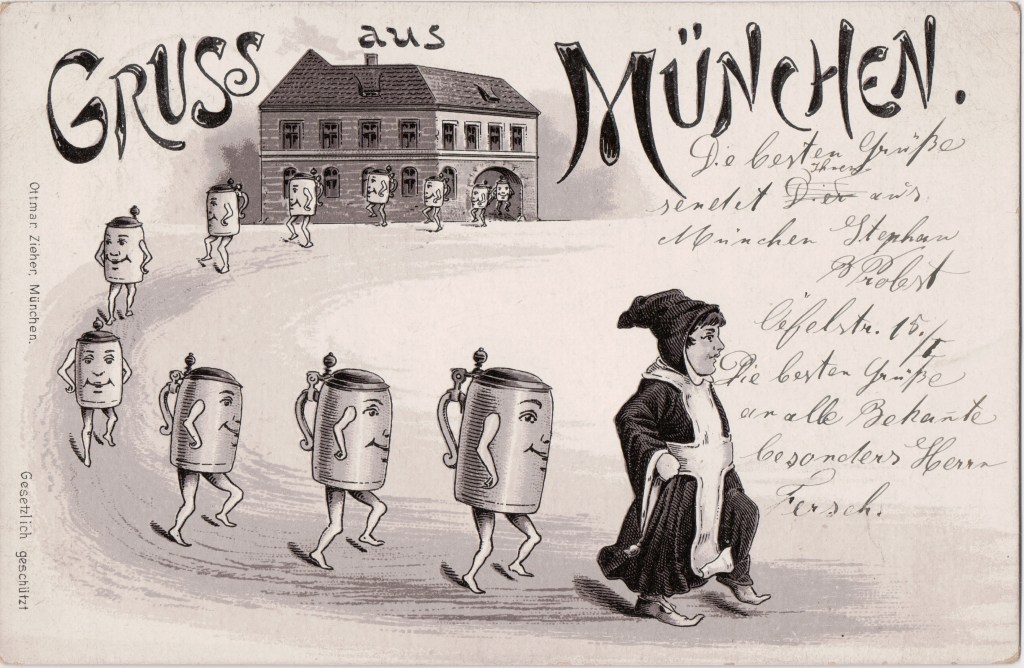 GRUSS aus MÜNCHEN.
Die besten Grüße
Ihnen
sendet Dir aus
München Stephan
Probst
Ottmar Zieher, München.
15./I
Die besten Grüße
an alle Bekañte
besonders Herrn
Fersch.
Gesetzlich geschützt